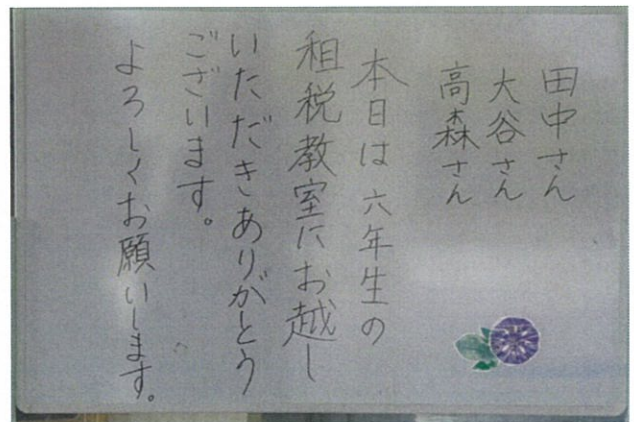 田中さん
大谷さん
高森さん
本日は六年生の
租税教室にお越し
いただきありがとう
ございます。
よろしくお願いします。